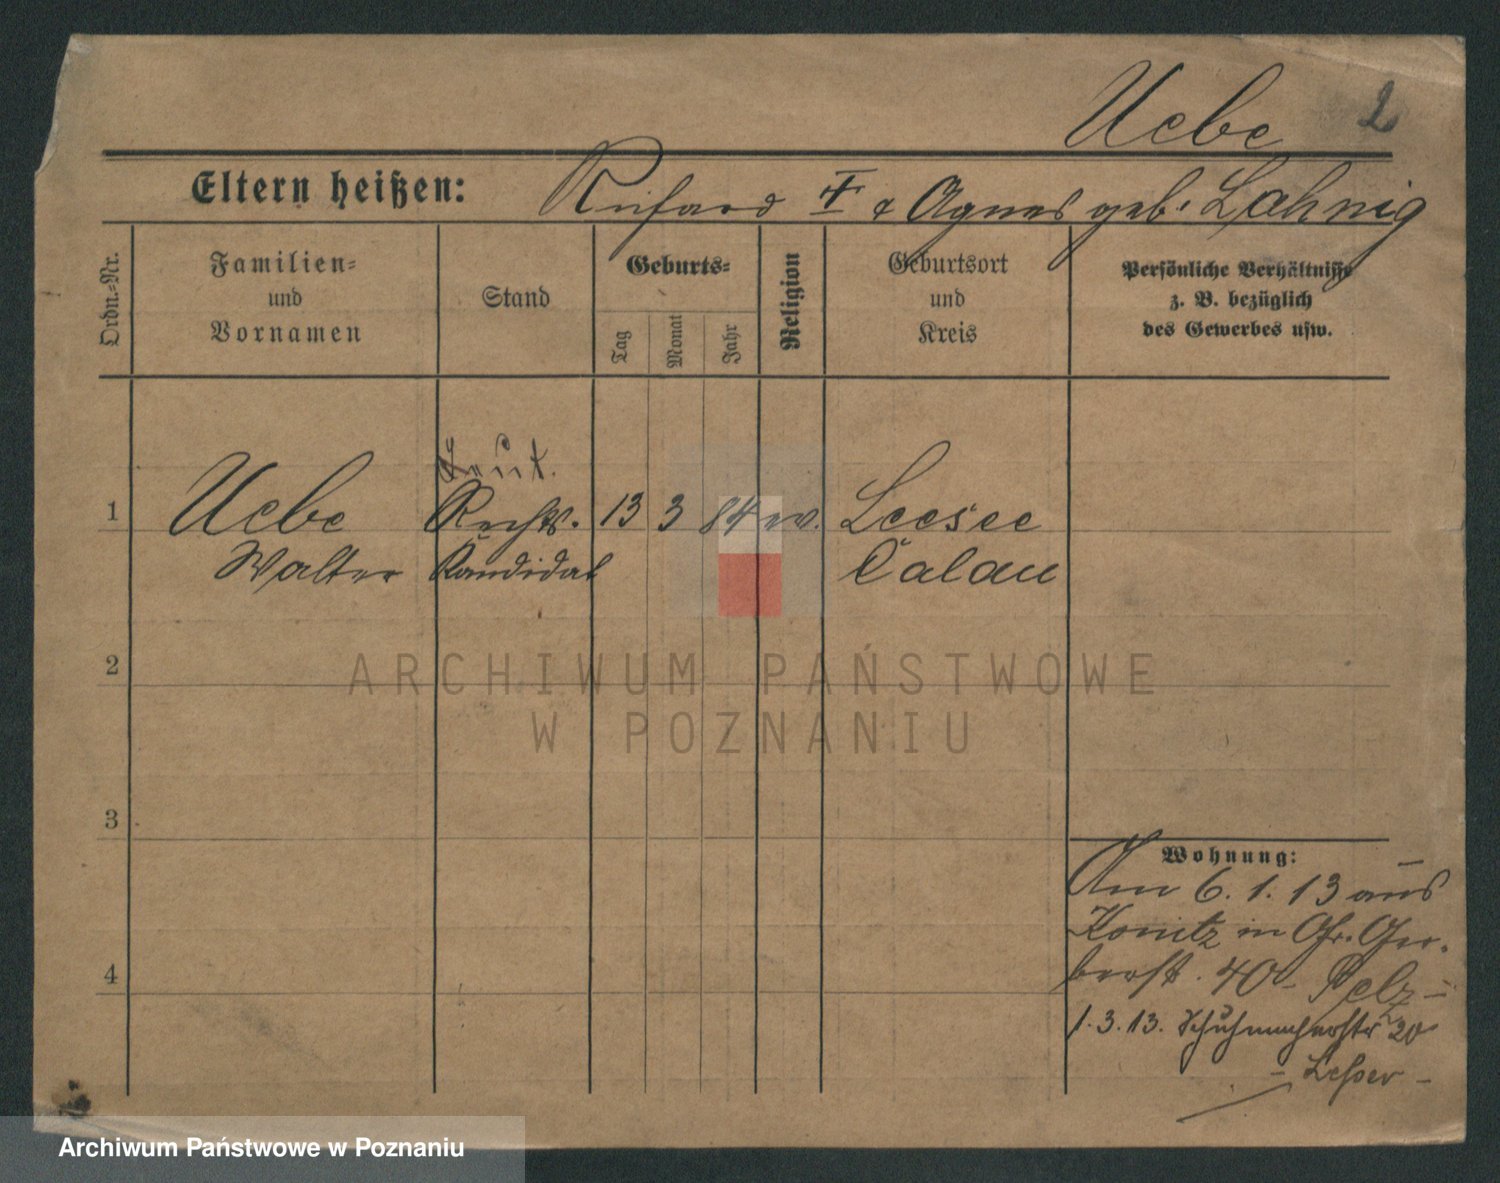 Uebe 2
Eltern heißen: Richard † & Agnes geb. Lahnig
Ordn.-Nr.
Familien-
und
Vornamen
Stand
Geburts-
Tag
Monat
Jahr
Religion
Geburtsort
und
Kreis
Persönliche Verhältnisse
z. B. bezüglich
des Gewerbes usw.
1 Uebe Rechts- 13 3 84 ev. Leesee
Walter Kandidat Calau
2
3
4
Wohnung:
Am 6.1.13 aus
Konitz in Gr. Ger-
berst. 40 - Pelz -
1.3.13. Schuhmacherstr 20
- Lesser -
ARCHIWUM PAŃSTWOWE
W POZNANIU
Archiwum Państwowe w Poznaniu